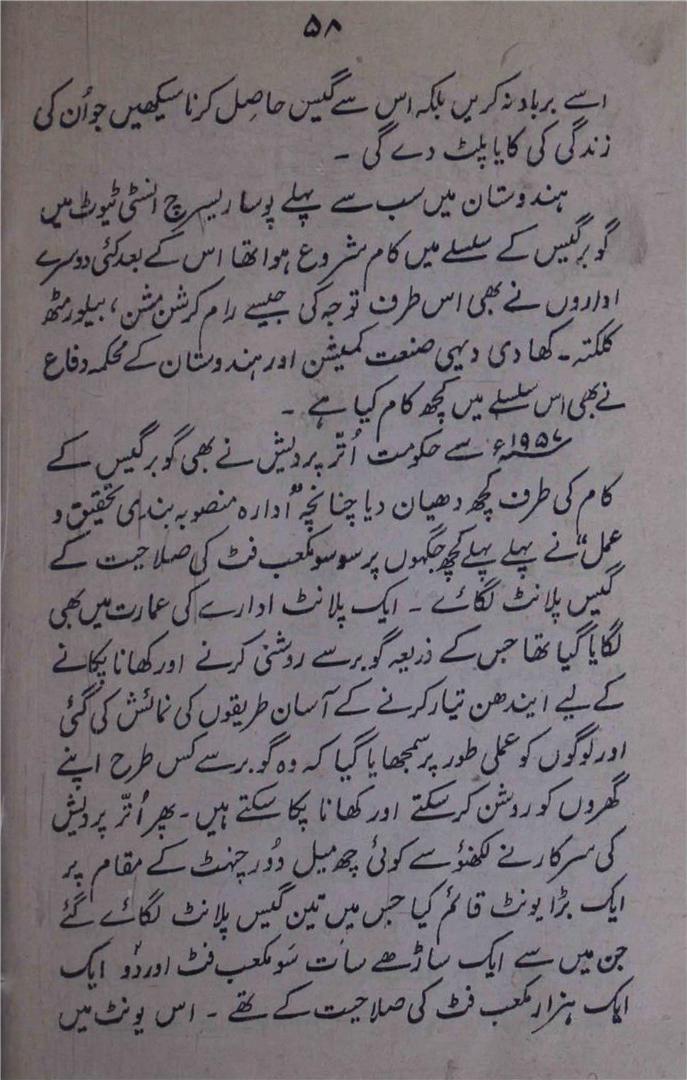 ۵۸
اسے برباد نہ کریں بلکہ اس سے گیس حاصل کرنا سیکھیں جو اُن کی
زندگی کی کایا پلٹ دے گی ۔
ہندوستان میں سب سے پہلے پوسا ریسرچ انسٹی ٹیوٹ میں
گوبر گیس کے سلسلے میں کام شروع ہوا تھا اس کے بعد کئی دوسرے
اداروں نے بھی اس طرف توجہ کی جیسے رام کرشن مشن، بیلور مٹھ
کلکتہ ۔ کھادی دیہی صنعت کمیشن اور ہندوستان کے محکمہ دفاع
نے بھی اس سلسلے میں کچھ کام کیا ہے ۔
۱۹۵۷ء سے حکومت اُتّر پردیش نے بھی گوبر گیس کے
کام کی طرف کچھ دھیان دیا چنانچہ "ادارہ منصوبہ بندی تحقیق و
عمل" نے پہلے پہلے کچھ جگہوں پر سو سو مکعب فٹ کی صلاحیت کے
گیس پلانٹ لگائے ۔ ایک پلانٹ ادارے کی عمارت میں بھی
لگایا گیا تھا جس کے ذریعہ گوبر سے روشنی کرنے اور کھانا پکانے
کے لیے ایندھن تیار کرنے کے آسان طریقوں کی نمائش کی گئی
اور لوگوں کو عملی طور پر سمجھایا گیا کہ وہ گوبر سے کس طرح اپنے
گھروں کو روشن کر سکتے اور کھانا پکا سکتے ہیں ۔ پھر اُتّر پردیش
کی سرکار نے لکھنؤ سے کوئی چھ میل دُور چنہٹ کے مقام پر
ایک بڑا یونٹ قائم کیا جس میں تین گیس پلانٹ لگائے گئے
جن میں سے ایک ساڑھے سات سَو مکعب فٹ اور دُو ایک
ایک ہزار مکعب فٹ کی صلاحیت کے تھے ۔ اس یونٹ میں